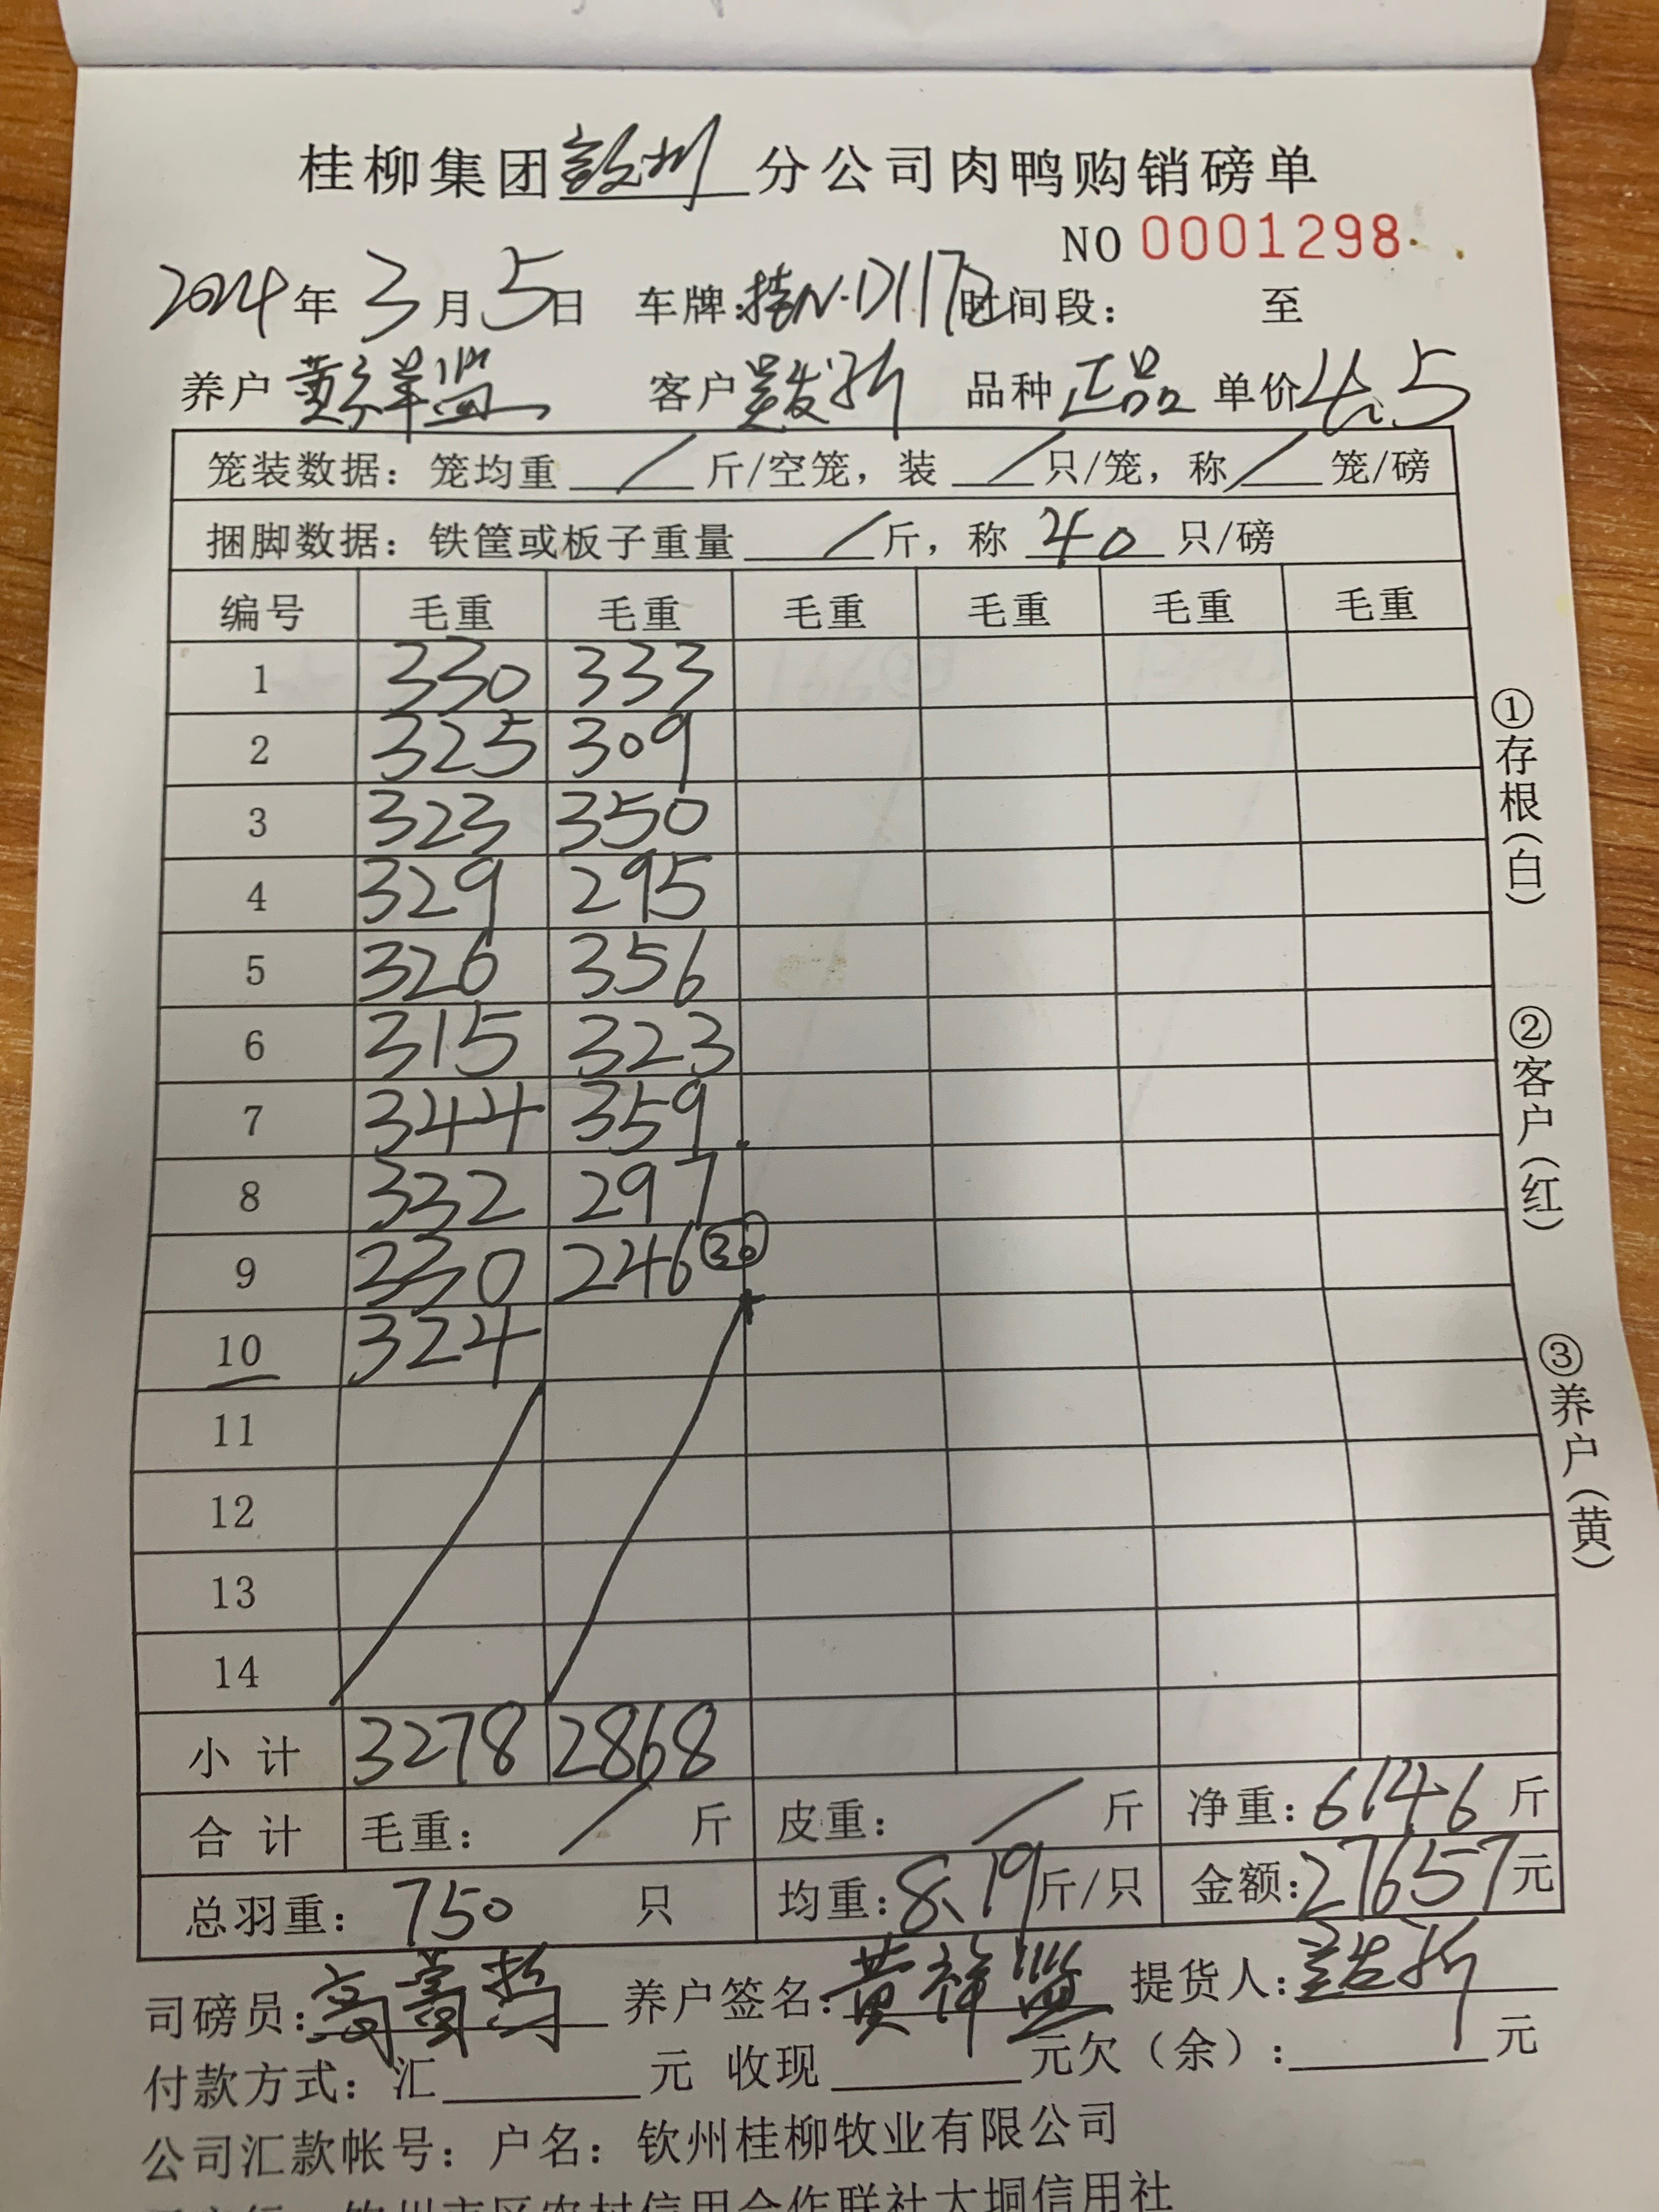 桂柳集团钦州分公司肉鸭购销磅单
NO 0001298
2024年3月5日 车牌:桂N·D1172 时间段: 至
养户 黄祥监 客户 发新 品种 正品 单价 4.5
笼装数据: 笼均重 / 斤/空笼, 装 / 只/笼, 称 / 笼/磅
捆脚数据: 铁筐或板子重量 / 斤, 称 40 只/磅
编号 毛重 毛重 毛重 毛重 毛重 毛重
1 330 333
2 325 309
3 323 350
4 329 295
5 326 356
6 315 323
7 344 359
8 332 297
9 330 246 30
10 324
11
12
13
14
小计 3278 2868
合计 毛重: / 斤 皮重: / 斤 净重: 6146 斤
总羽重: 750 只 均重: 8.19 斤/只 金额: 27657 元
①存根(白)
②客户(红)
③养户(黄)
司磅员: 养户签名: 黄祥监 提货人:
付款方式: 汇 元 收现 元欠(余): 元
公司汇款帐号: 户名: 钦州桂柳牧业有限公司
钦州市区农村信用合作联社大垌信用社